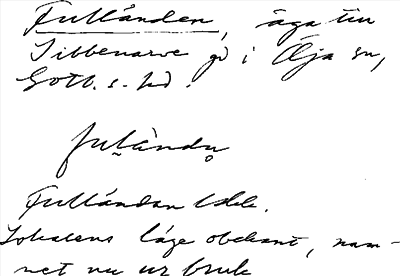 Fulländen, äga till
Sibbenarve gd i Öja sn,
Gotl. s. hd.
fulàndu̥
Fulländan Idek.
Lokalens läge obekant, nam-
net nu ur bruk